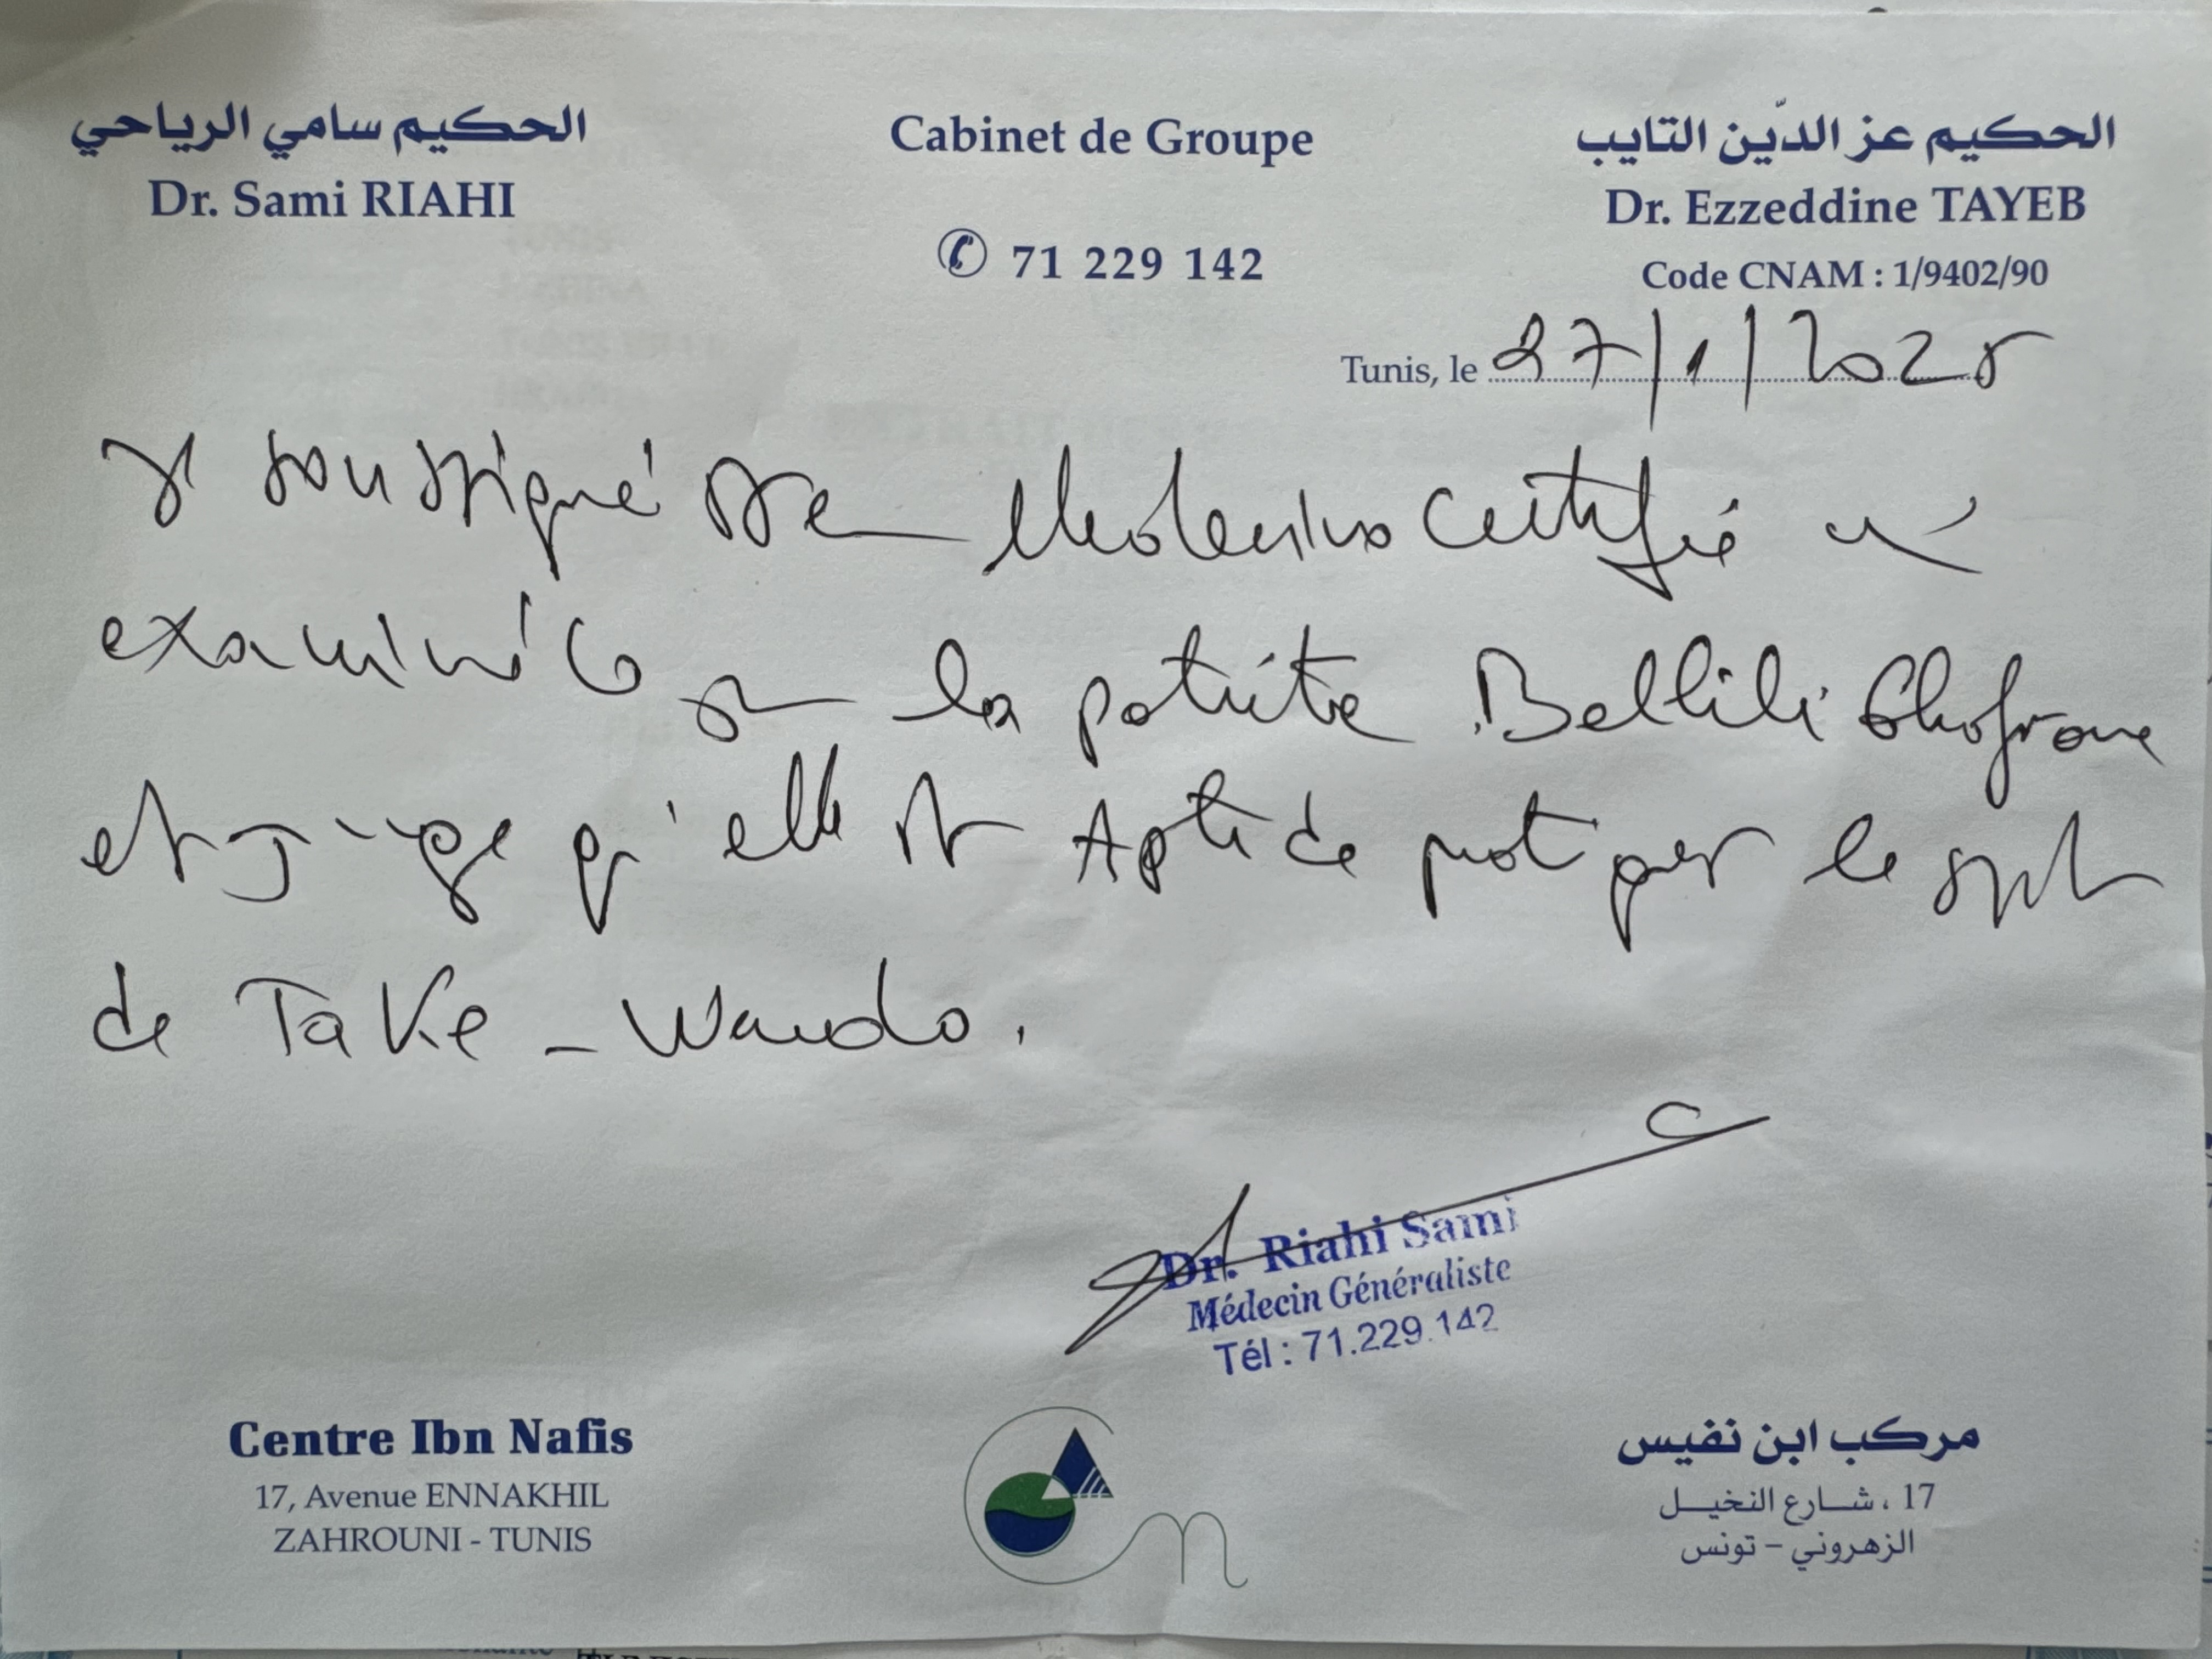 الحكيم سامي الرياحي
Dr. Sami RIAHI
Cabinet de Groupe
✆ 71 229 142
الحكيم عز الدّين التايب
Dr. Ezzeddine TAYEB
Code CNAM : 1/9402/90
Tunis, le 27/1/2025
Je soussigné Dr en Medecine certifie
examiné ce jour la patiente Bellili Ghofrane
et juge qu'elle est Apte de pratiquer le sport
de TaKe - Wando.
Dr. Riahi Sami
Médecin Généraliste
Tél : 71.229.142
Centre Ibn Nafis
17, Avenue ENNAKHIL
ZAHROUNI - TUNIS
مركب ابن نفيس
17 ، شارع النخيل
الزهروني – تونس